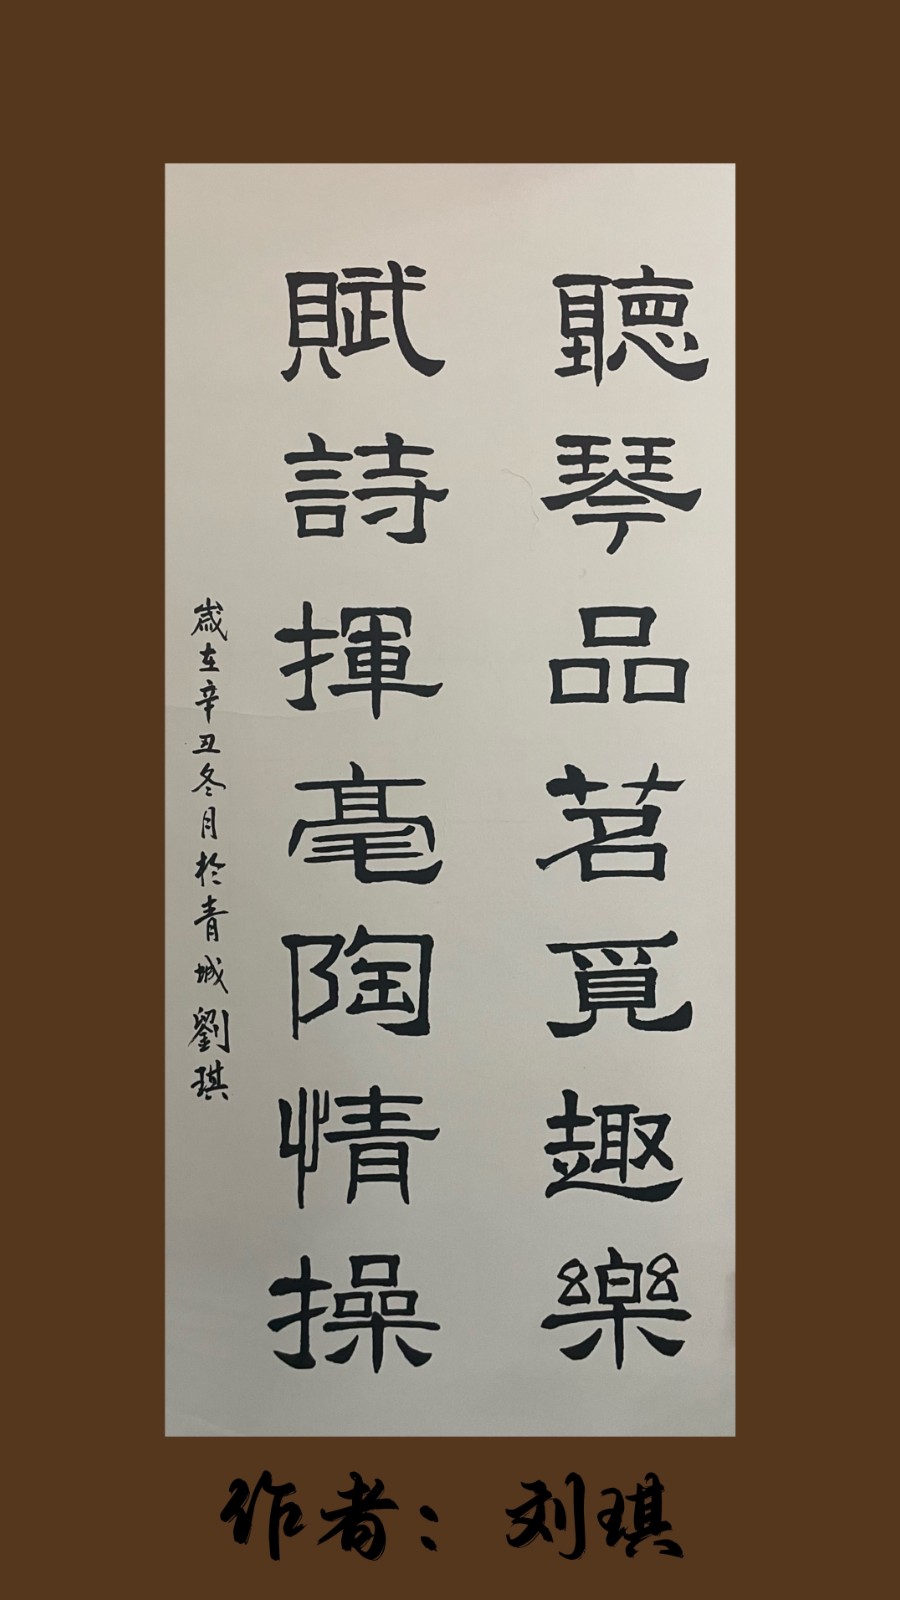 聽琴品茗覓趣樂
賦詩揮毫陶情操
歲在辛丑冬月於青城劉琪
作者：刘琪